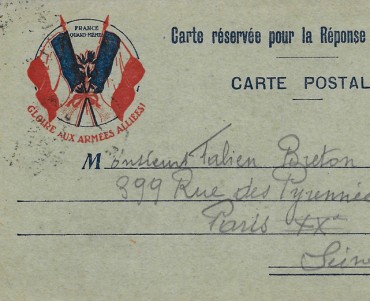 FRANCE
QUAND-MÊME
GLOIRE AUX ARMÉES ALLIÉES!
Carte réservée pour la Réponse
CARTE POSTAL
Monsieur Fabien Breton
399 Rue des Pyrénée
Paris XXe
Sein